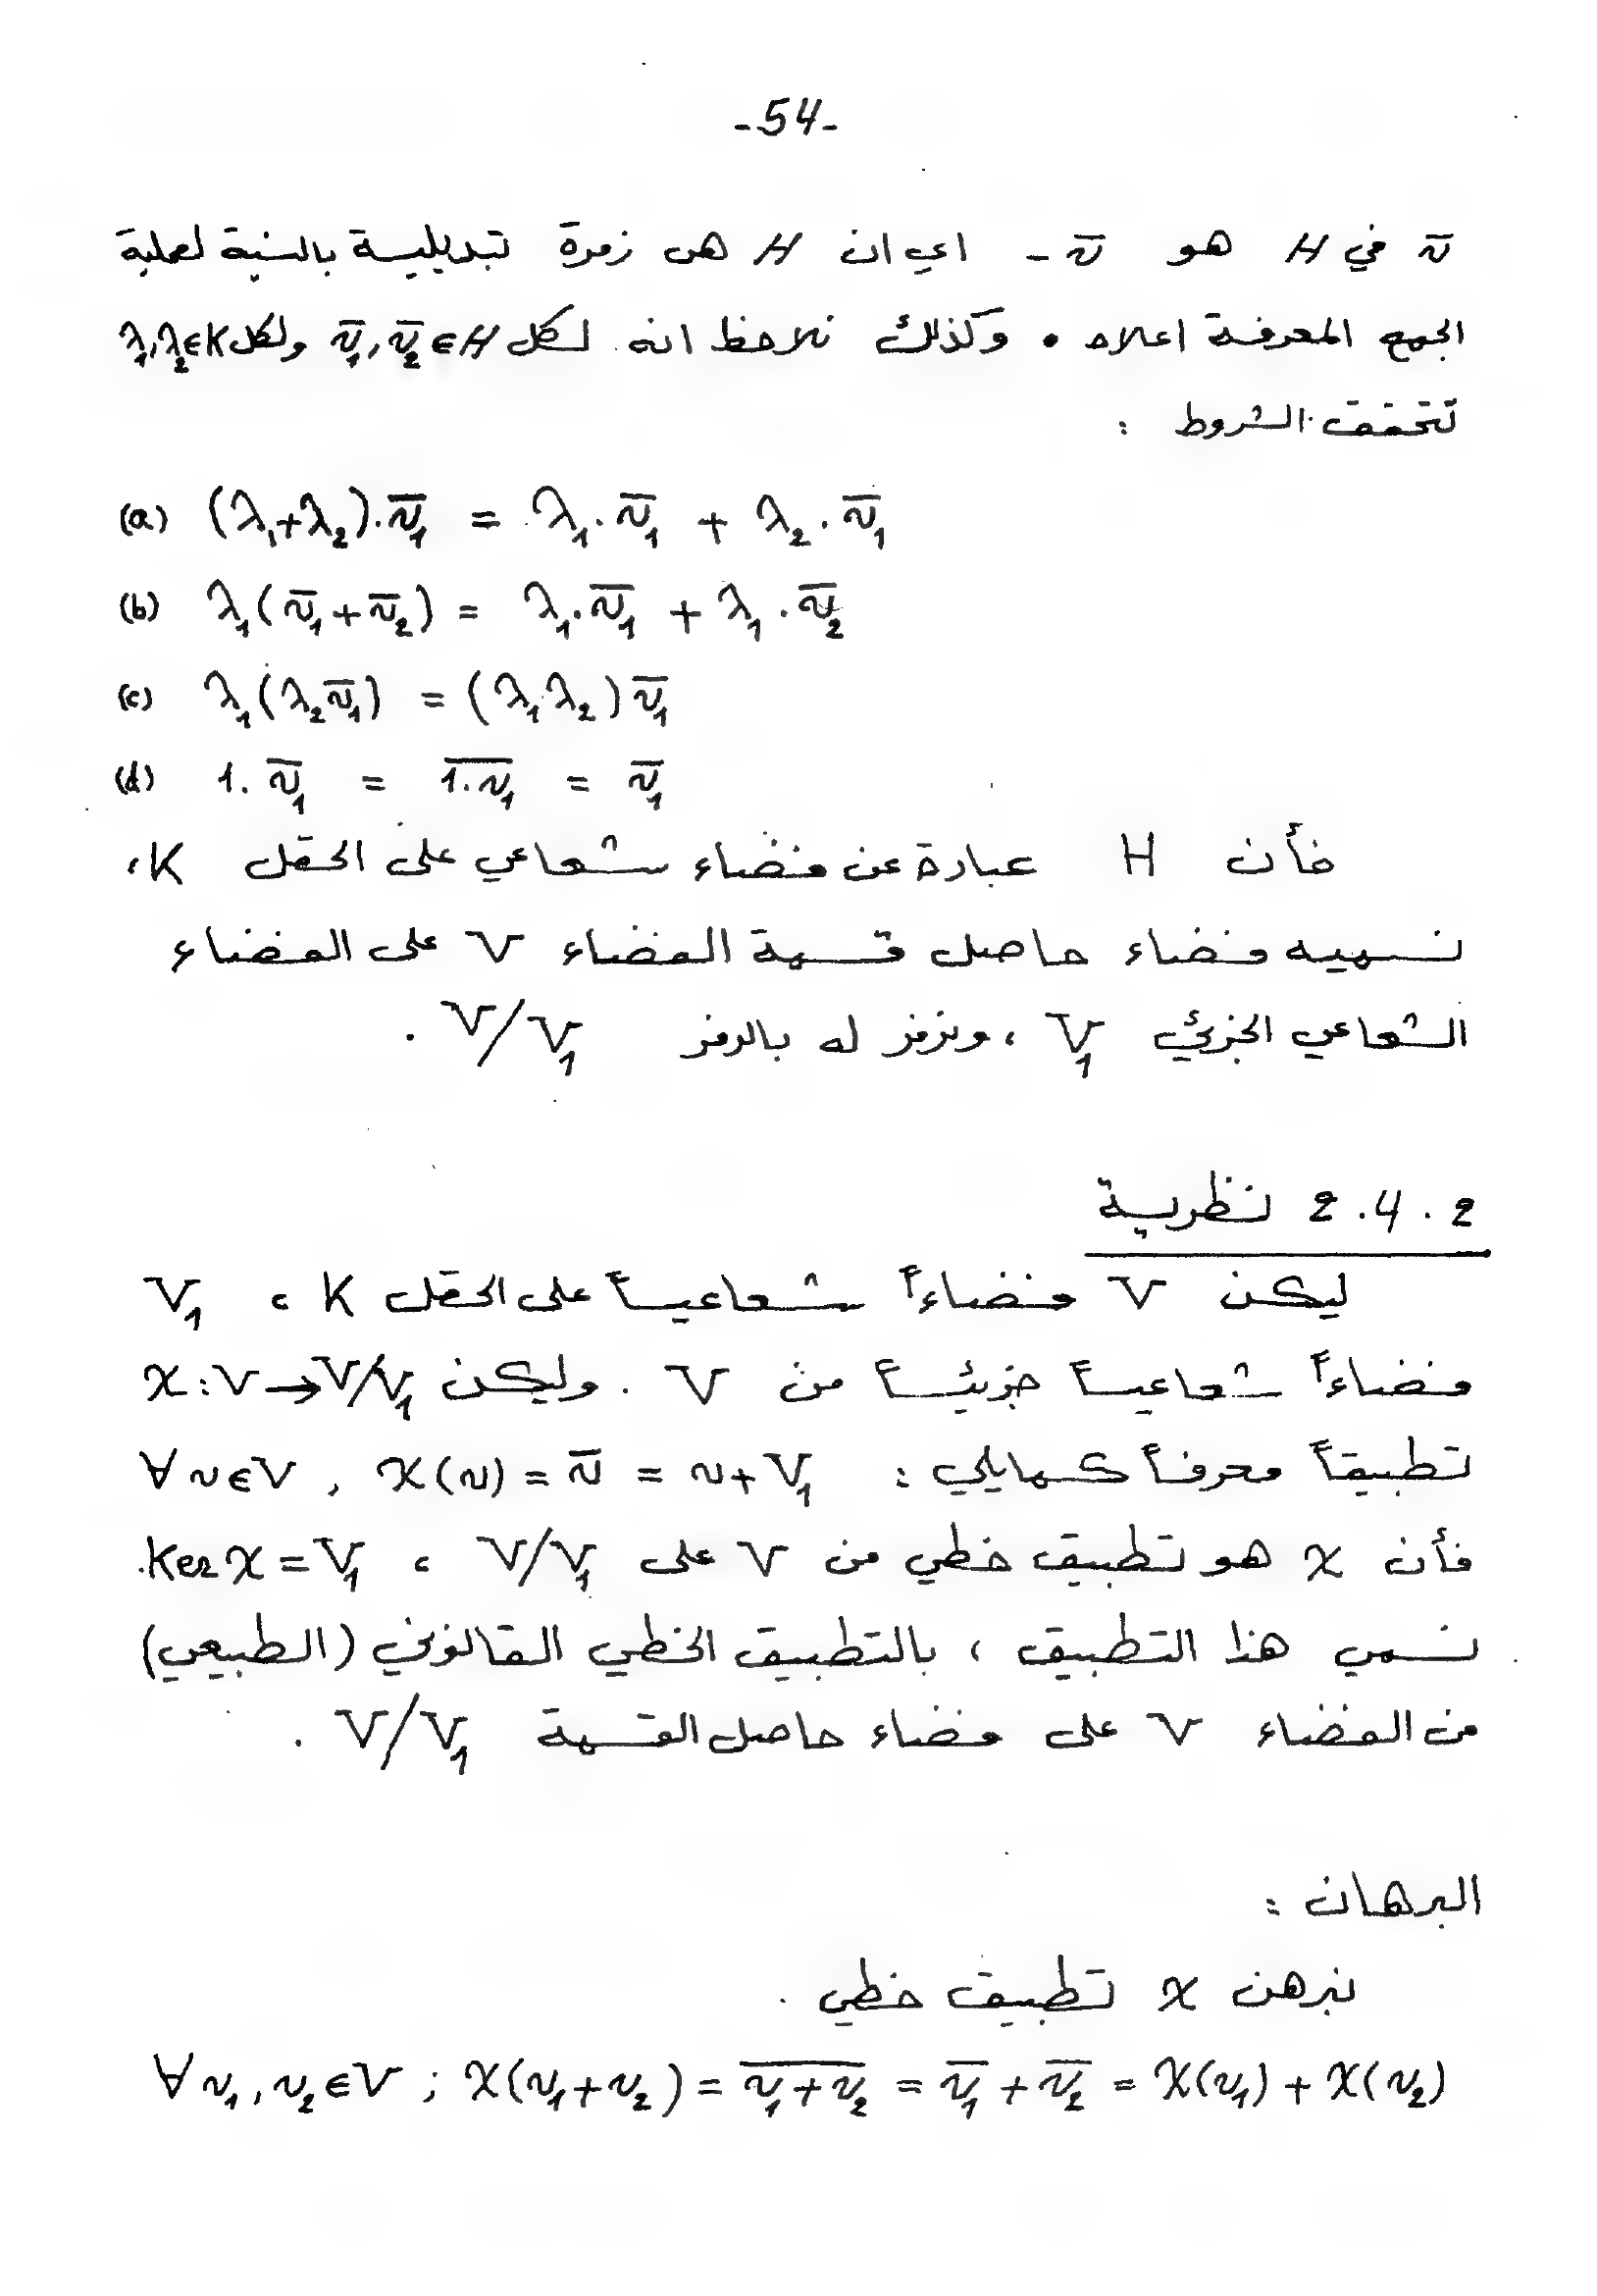 -54-
v̄ في H هو v̄ - اي ان H هي زمرة تبديلية بالنسبة لعملية
الجمع المعرفة اعلاه . وكذلك نلاحظ انه لكل v̄₁, v̄₂ ∈ H ولكل λ₁, λ₂ ∈ K
تتحقق الشروط :
(a) (λ₁+λ₂)·v̄₁ = λ₁·v̄₁ + λ₂·v̄₁
(b) λ₁(v̄₁+v̄₂) = λ₁·v̄₁ + λ₁·v̄₂
(c) λ₁(λ₂v̄₁) = (λ₁λ₂)v̄₁
(d) 1.v̄₁ = \overline{1.v₁} = v̄₁
فأن H عبارة عن فضاء شعاعي على الحقل K ،
نسميه فضاء حاصل قسمة الفضاء V على الفضاء
الشعاعي الجزئي V₁ ، ونرمز له بالرمز V/V₁ .
2.4.2 نظرية
ليكن V فضاءاً شعاعياً على الحقل K ، V₁
فضاءاً شعاعياً جزئياً من V . وليكن χ:V→V/V₁
تطبيقاً معرفاً كمايلي : ∀v∈V , χ(v) = v̄ = v+V₁
فأن χ هو تطبيق خطي من V على V/V₁ ، Ker χ = V₁.
نسمي هذا التطبيق ، بالتطبيق الخطي القانوني (الطبيعي)
من الفضاء V على فضاء حاصل القسمة V/V₁ .
البرهان :
نبرهن χ تطبيق خطي .
∀v₁,v₂∈V ; χ(v₁+v₂) = \overline{v₁+v₂} = v̄₁+v̄₂ = χ(v₁)+χ(v₂)